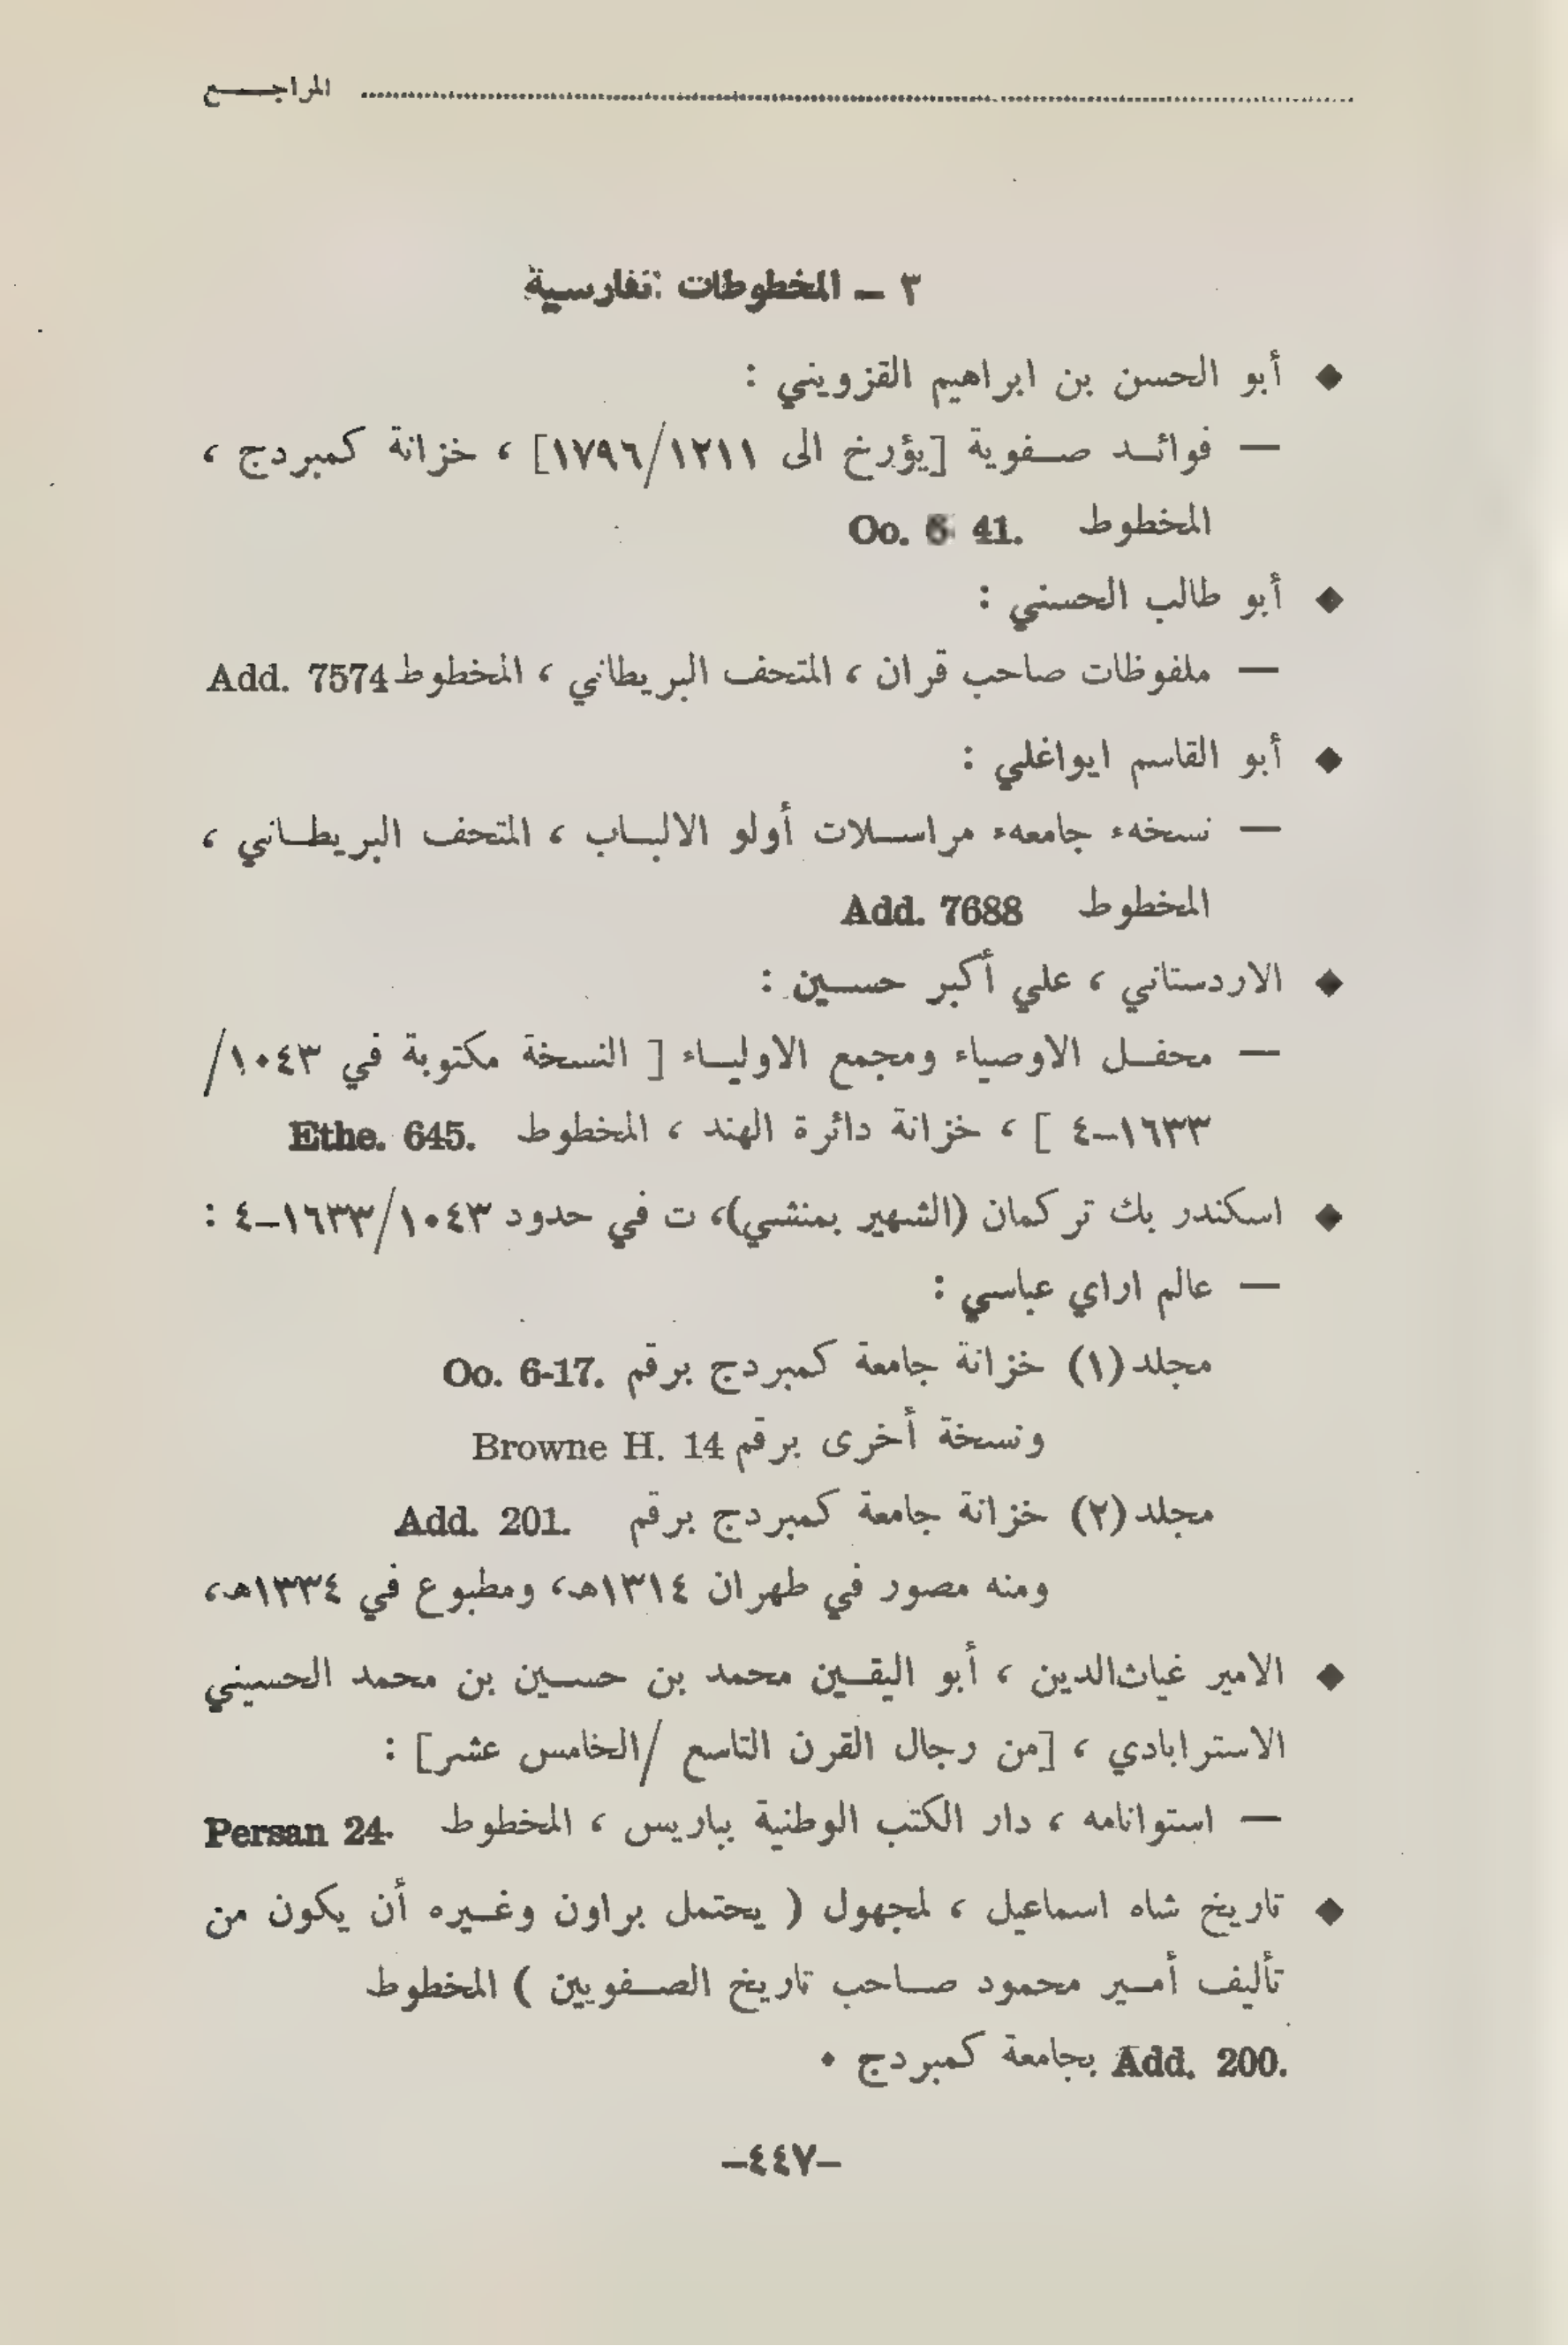 المراجع
٣ – المخطوطات الفارسية
◆ أبو الحسن بن ابراهيم القزويني :
— فوائد صفوية [يؤرخ الى ١٢١١/١٧٩٦] ، خزانة كمبردج ،
المخطوط Oo. 41.
◆ أبو طالب الحسني :
— ملفوظات صاحب قران ، المتحف البريطاني ، المخطوط Add. 7574
◆ أبو القاسم ايواغلي :
— نسخهء جامعهء مراسلات أولو الالباب ، المتحف البريطاني ،
المخطوط Add. 7688
◆ الاردستاني ، علي أكبر حسين :
— محفل الاوصياء ومجمع الاولياء [ النسخة مكتوبة في ١٠٤٣/
١٦٣٣–٤ ] ، خزانة دائرة الهند ، المخطوط Ethe. 645.
◆ اسكندر بك تركمان (الشهير بمنشي)، ت في حدود ١٠٤٣/١٦٣٣–٤ :
— عالم اراي عباسي :
مجلد (١) خزانة جامعة كمبردج برقم Oo. 6-17.
ونسخة أخرى برقم Browne H. 14
مجلد (٢) خزانة جامعة كمبردج برقم Add. 201.
ومنه مصور في طهران ١٣١٤هـ، ومطبوع في ١٣٣٤هـ،
◆ الامير غياث‌الدين ، أبو اليقين محمد بن حسين بن محمد الحسيني
الاسترابادي ، [من رجال القرن التاسع /الخامس عشر] :
— استوانامه ، دار الكتب الوطنية بباريس ، المخطوط Persan 24.
◆ تاريخ شاه اسماعيل ، لمجهول ( يحتمل براون وغيره أن يكون من
تأليف أمير محمود صاحب تاريخ الصفويين ) المخطوط
Add. 200. بجامعة كمبردج ٠
–٤٤٧–